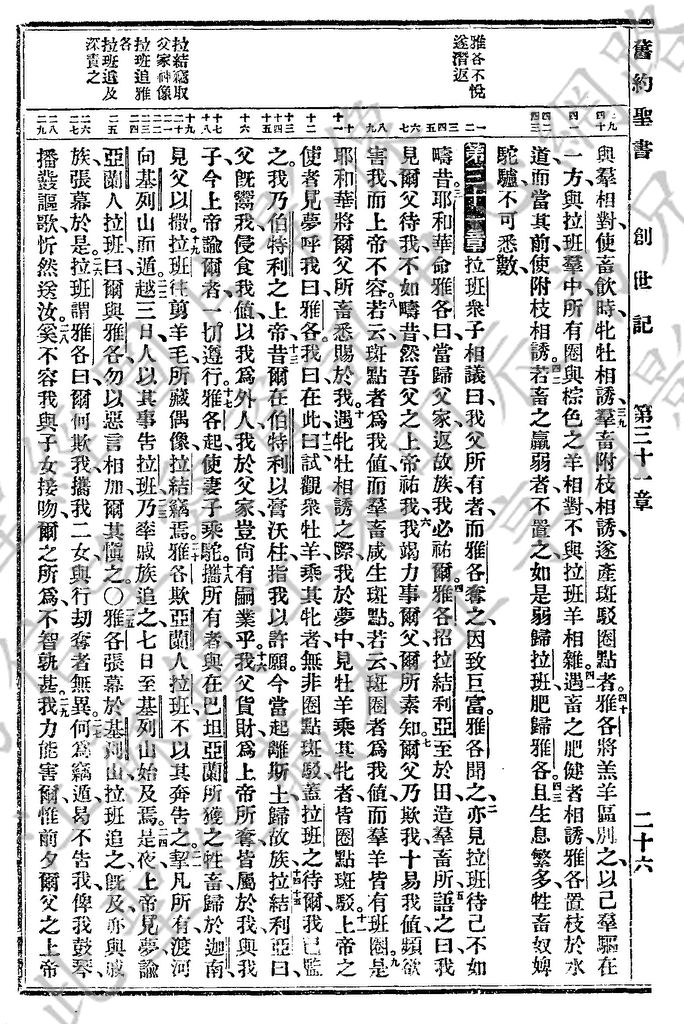 舊約聖書 創世記 第三十一章 二十六
與羣相對使畜飲時牝牡相誘羣畜附枝相誘遂產斑駁圈點者雅各將羔羊區別之以己羣驅在
一方與拉班羣中所有圈與棕色之羊相對不與拉班羊相雜遇畜之肥健者相誘雅各置枝於水
道而當其前使附枝相誘若畜之羸弱者不置之如是弱歸拉班肥歸雅各且生息繁多牲畜奴婢
駝驢不可悉數
第三十一章 拉班衆子相議曰我父所有者而雅各奪之因致巨富雅各聞之亦見拉班待己不如
疇昔耶和華命雅各曰當歸父家返故族我必祐爾雅各招拉結利亞至於田造羣畜所語之曰我
見爾父待我不如疇昔然吾父之上帝祐我我竭力事爾父爾所素知爾父乃欺我十易我值頻欲
害我而上帝不容若云斑點者為我值而羣畜咸生斑點若云斑圈者為我值而羣羊皆有斑圈是
耶和華將爾父所畜悉賜於我遇牝牡相誘之際我於夢中見牡羊乘其牝者皆圈點斑駁上帝之
使者見夢呼我曰雅各我曰在此曰試觀衆牡羊乘其牝者無非圈點斑駁蓋拉班之待爾我已監
之我乃伯特利之上帝昔爾在伯特利以膏沃柱指我以許願今當起離斯土歸故族拉結利亞曰
父旣鬻我侵食我值以我為外人我於父家豈尙有嗣業乎我父貨財為上帝所奪皆屬於我與我
子今上帝諭爾者一切遵行雅各起使妻子乘駝攜所有者與在巴坦亞蘭所獲之牲畜歸於迦南
見父以撒拉班往剪羊毛所藏偶像拉結竊焉雅各欺亞蘭人拉班不以其奔告之挈凡所有渡河
向基列山而遁越三日人以其事告拉班乃率戚族追之七日至基列山始及焉是夜上帝見夢諭
亞蘭人拉班曰爾與雅各勿以惡言相加爾其愼之〇雅各張幕於基列山拉班追之旣及亦與戚
族張幕於是拉班謂雅各曰爾何欺我攜我二女與行劫奪者無異何為竊遁曷不告我俾我鼓琴
播鼗謳歌忻然送汝奚不容我與子女接吻爾之所為不智孰甚我力能害爾惟前夕爾父之上帝
雅各不悅
遂潛返
拉結竊取
父家神像
拉班追雅
各
拉班追及
深責之